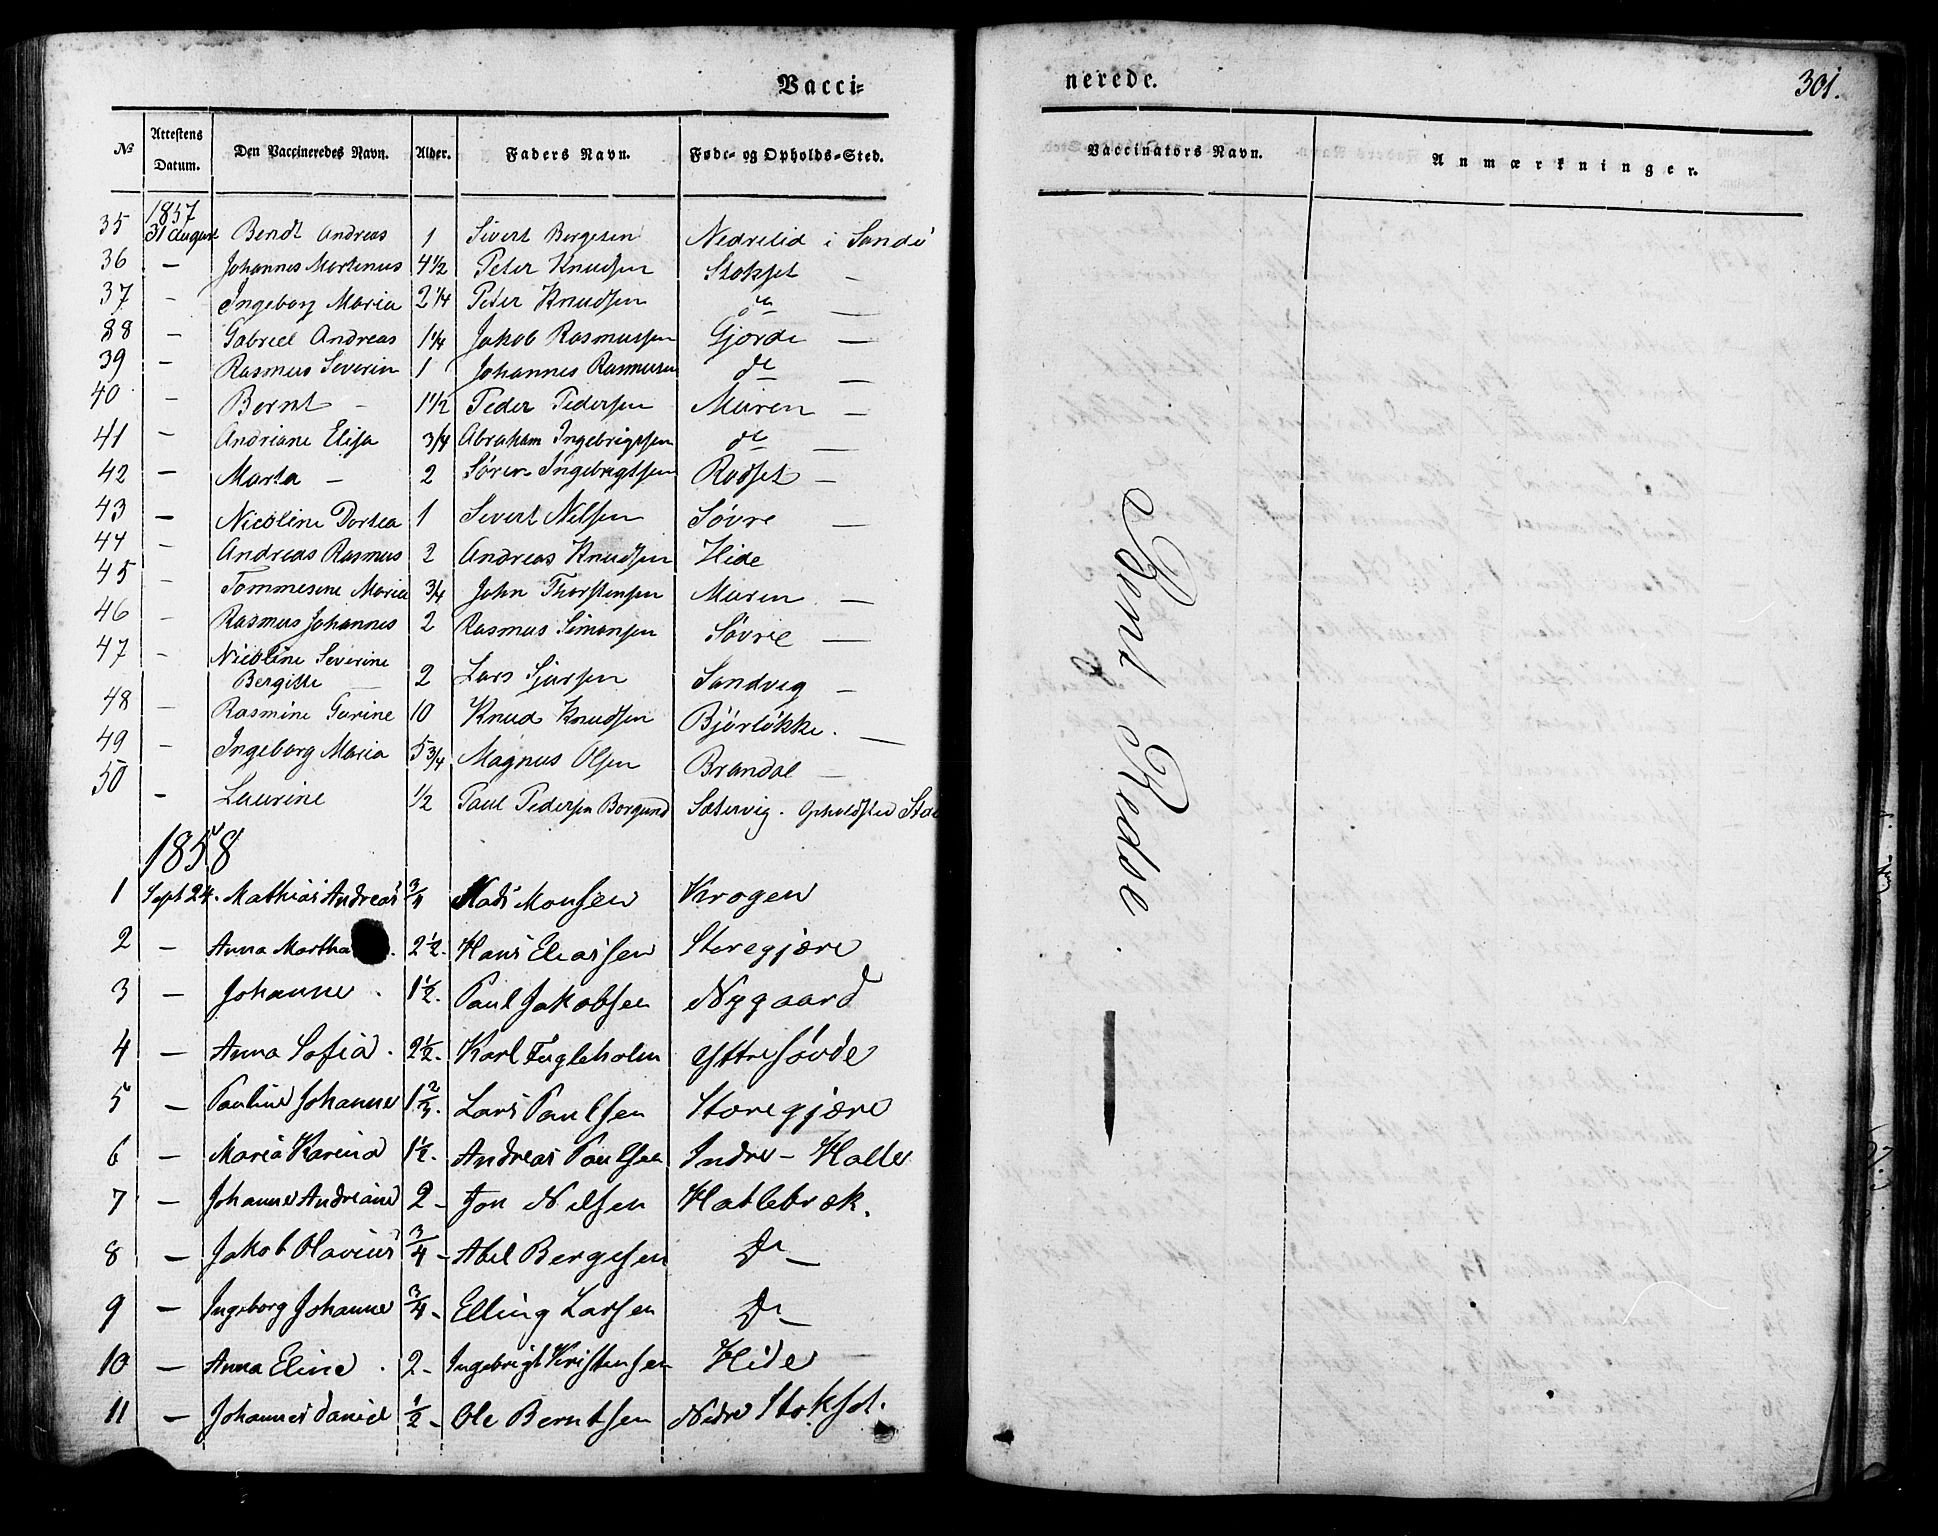 Vacci-
№ Attestens Datum. Den Vaccineredes Navn. Alder. Faders Navn. Føde- og Opholds-Sted.
1857
35 31 August Bendt Andreas 1 Sivert Bergesen Nedrelid i Sandø
36 — Johannes Martinus 4 1/2 Peter Knudsen Stokset —
37 - Ingeborg Maria 2 1/4 Peter Knudsen do —
38 - Gabriel Andreas 1 1/4 Jakob Rasmussen Gjerde —
39 - Rasmus Severin 1 Johannes Rasmussen do —
40 - Bernt - 1 1/2 Peder Pedersen Muren —
41 - Andriane Elisa 3/4 Abraham Ingebrigtsen do —
42 - Marta - 2 Søren Ingebrigtsen Rødset —
43 — Nicoline Dortea 1 Sivert Nilsen Søvre —
44 - Andreas Rasmus 2 Andreas Knudsen Hide
45 - Tommesine Maria 3/4 John Thorstensen Muren —
46 - Rasmus Johannes 2 Rasmus Simonsen Søvre —
47 - Nicoline Severine
Bergitte 2 Lars Sjursen Sandvig —
48 — Rasmine Gurine 10 Knud Knudsen Bjørløkke. —
49 - Ingeborg Maria 5 3/4 Magnus Olsen Brandal —
50 - Laurine 1/2 Paul Pedersen Borgund Sætervig. Opholdsted
1858
1 Sept 24. Mathias Andreas 3/4 Mads Monsen Krogen
2 — Anna Martha . 2 1/2. Hans Eliassen Storegjære
3 — Johanne . 1 1/2. Paul Jakobsen Nygaard
4 — Anna Sofia . 2 1/2. Karl Fugleholm Yttresøvde
5 — Pauline Johanne 1 2/3. Lars Paulsen Storegjære
6 — Maria Karina 1 1/2. Andreas Paulsen Indre - Holle
7 — Johanne Andriane 2 - Jon Nilsen Hatlebræk.
8 — Jakob Olavius 3/4 - Abel Bergesen Do —
9 — Ingeborg Johanne 3/4 - Elling Larsen Do —
10 — Anna Eline . 2 - Ingebrigt Kristensen Hide
11 — Johannes Daniel 1/2 - Ole Berntsen Nedre Stokset.
nerede.
301.
Vaccinators Navn. Anmærkninger.
Bernt Rødse.